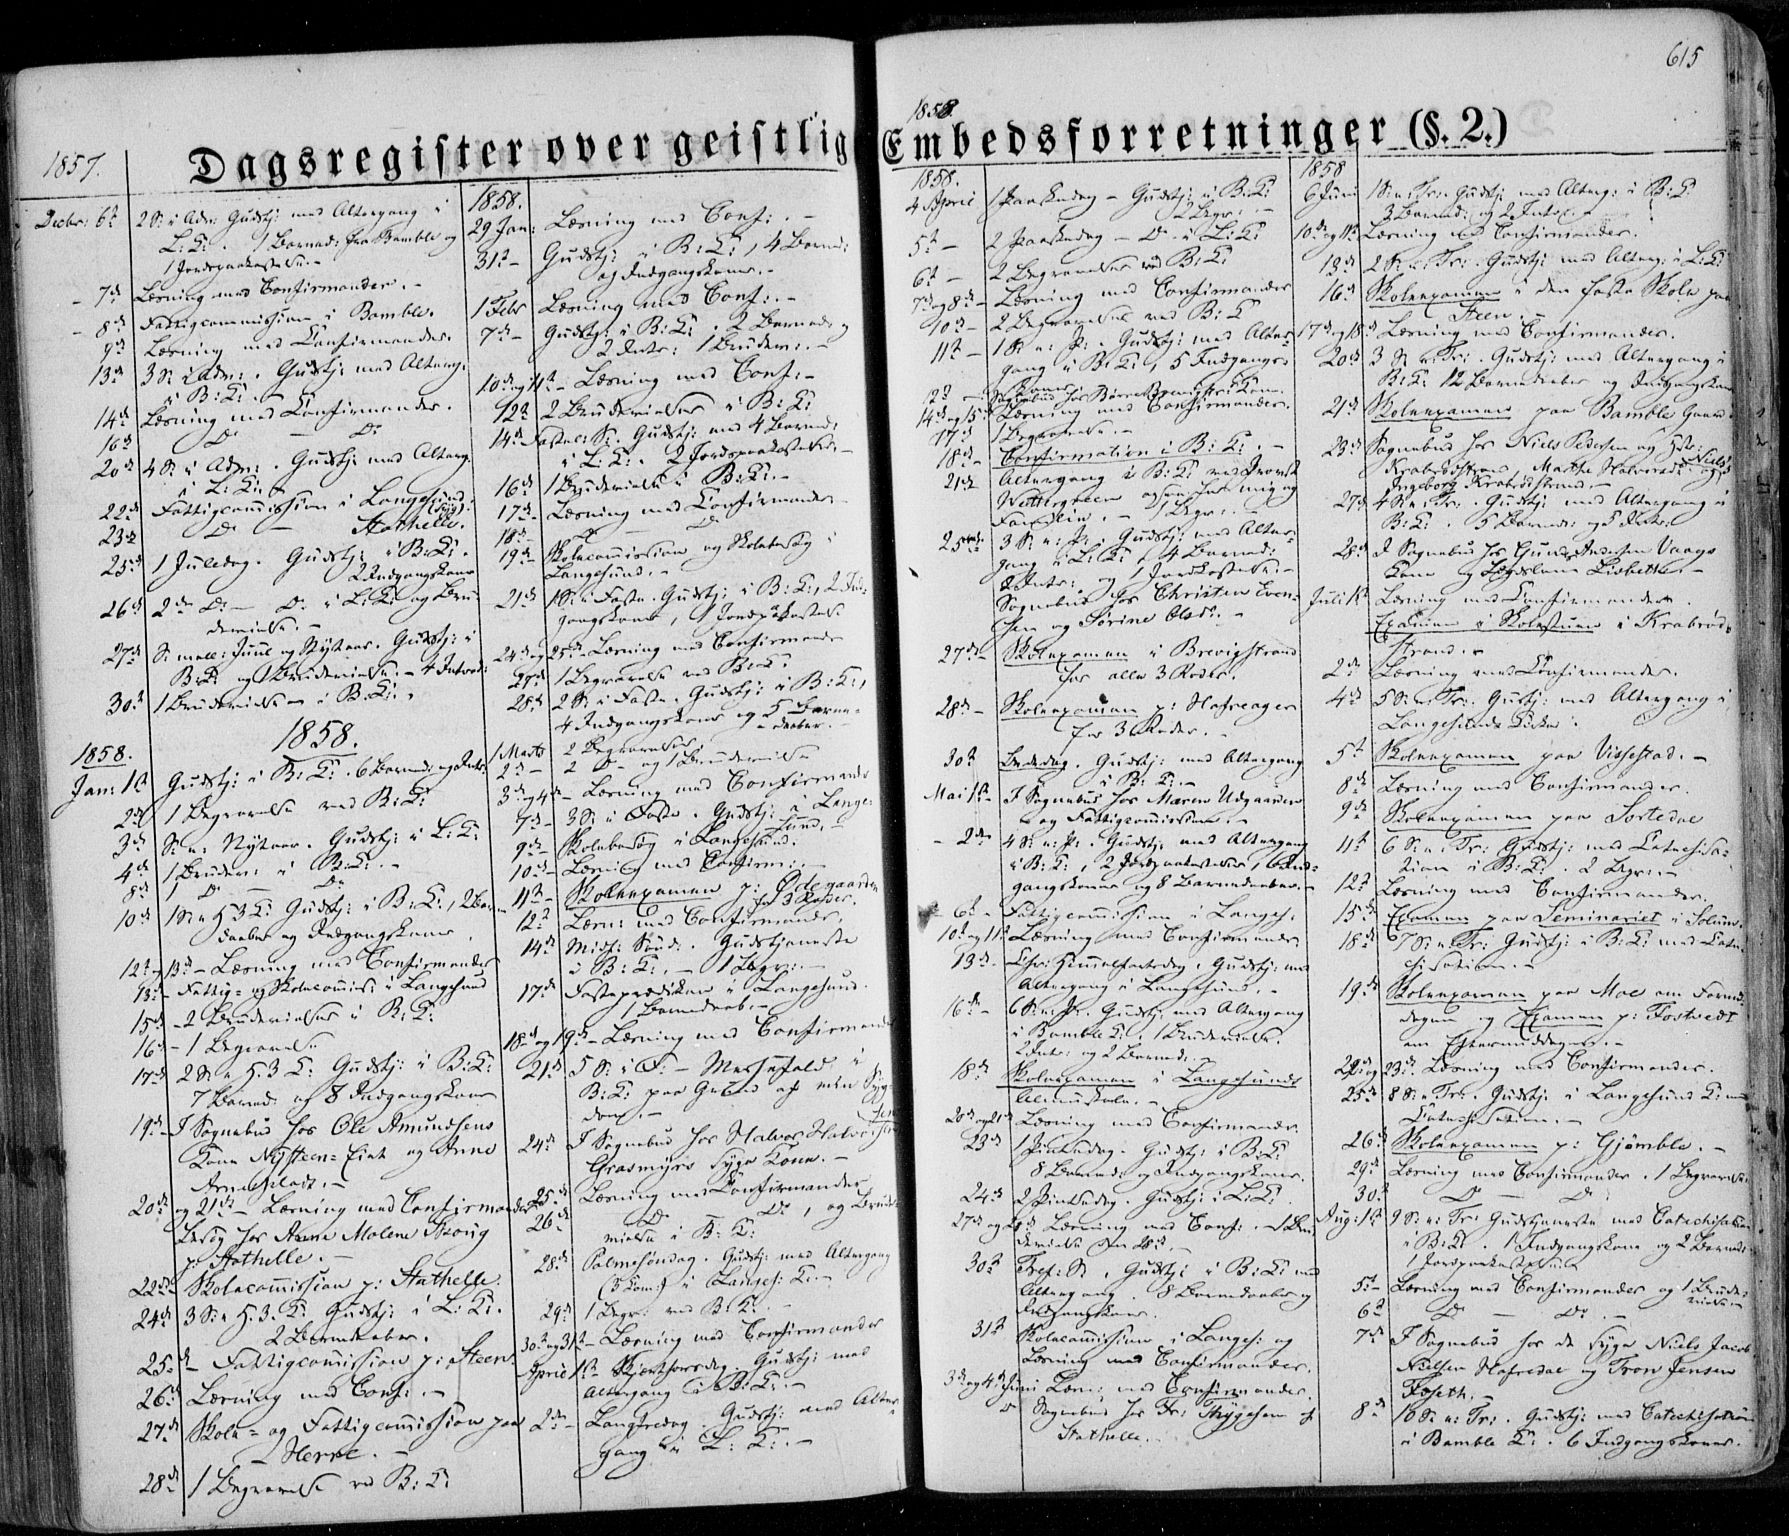 615
1858.
Dagsregister over geistlig Embedsforretninger (§. 2.)
1857.
Decbr: 6te 2 S: i Adv: Gudstj: med Altergang i
L: K: . 1 Barned: fra Bamble og
1 Jordpaakastelse. –
– 7de Læsning med Confirmander. –
– 8de Fattigcommission i Bamble.
9de Læsning med Confirmander.
13de 3 S: i Adv: . Gudstj: med Alterg:
i B: K: . –
14de Læsning med Confirmander.
16de Do – Do
20de 4 S: i Adv: . Gudstj: med Alterg:
i L: K: –
22de Fattigcommission i Langesund.
23de Do – Stathelle.
25de 1 Juledag. Gudstj: i B: K: .
2 Indgangskoner
26de 2de Do – Do i L: K: og Bru-
devielse. –
27de S: mell: Juul og Nytaar. Gudstj: i
B: K: og 1 Brudevielse. – 4 Introd:
30te 1 Brudevielse i B: K: .
1858.
1858.
Jan: 1ste Gudstj: i B: K: . 6 Barned: og Intr:
2de 1 Begravelse ved B: K:
3de S: e: Nytaar. Gudstj: i L: K:
4de 1 Bruden: i B: K: . –
8de 1 Do – Do
10de 1 S: e H 3 K: Gudstj: i B: K: , 2 Bar-
nedaaber og Indgangskone.
12te og 13de – Læsning med Confirmander
13de – Fattig- og Skolecommiss: i Langesund
15de – 2 Brudevielser i B: K:
16de – 1 Begravelse
17de 2 S: e H. 3 K: Gudstj: i B: K:
7 Barned: og 8 Indgangskoner
19de – I Sognebud hos Ole Amundsens
Kone Nysteen-Eiet og Anne
20de og 21de – Læsning med Confirmander
Besøg hos Anne Malene Skoug
p: Stathelle. –
22de – Skolecommission p: Stathelle.
24de 3 S: e H. 3. K: Gudstj: i L: K:
2 Barnedaaber.
25de – Fattigcommission p: Steen.
26de Læsning med Conf: . –
27de Skole- og Fattigcommission paa
Herre. –
28de 1 Begravelse ved B: K:
1858.
29 Jan: Læsning med Conf: . –
31te – Gudstj: i B: K: , 4 Barned:
og Indgangskoner. –
1 Febr Læsning med Conf: . –
7de – Gudstj: i B: K: . 2 Barned: og
2 Intr: 1 Bruden: . –
10de og 11te – Læsning med Conf: . –
12te 2 Brudevielser i B: K:
14de Fastel: S: Gudstj: med 4 Barned:
i L: K: . 2 Jordpaakastelser. –
16de 1 Brudevielse i B: K: . –
17de – Læsning med Confirmander –
18de – Do – Do
19de – Skolecommission og Skolebesøg i
Langesund. –
21de 1 S: i Faste. Gudstj: i B: K: , 2 Ind-
gangskoner, 1 Jordpaakastelse
24de og 25de – Læsning med Confirmander
27de 1 Begravelse ved B: K:
28de 2 S: i Faste. Gudstj: i B: K: ,
4 Indgangskoner og 5 Barne-
daaber. –
1 Marts 2 Begravelser.
2de – 2 Do og 1 Brudevielse
3de og 4de – Læsning med Confirmander
7de – 3 S: i Faste. Gudstj: i Lange-
sund. –
9de – Skolebesøg i Langesund.
10de – Læsning med Confirm: . –
11te – Skolexamen p: Ødegaarden
for 3 Roder.
12te Læsn: med Confirmander.
14de Midf: Sønd: . Gudstjeneste
i B: K: . – 1 Begr: . –
17de Fasteprædiken i Langesund.
1 Barnedaab. –
18de og 19de – Læsning med Confirmander
21de 5 S: i F: – Messefald i
B: K: paa Grund af min Syg-
dom. –
24de I Sognebud hos Halvor Halvorsen
Grasmyrs syge Kone. –
25de Læsning med Confirmander
26de Do – Do , og Brude-
vielse i B: K:
28de Palmesøndag. Gudstj: med Altergang
(3 Kom:) i Langes: K: –
29de 1 Begr: ved B: K: . –
30te og 31te – Læsning med Confirmander
April 1ste – Skjærthorsdag. Gudstj: med
Altergang i B: K: . –
2de – Langfredag. Gudstj: med Alter-
gang i L: K: . –
1858.
4 April 1 Paaskedag – Gudstj: i B: K:
2 Begr: . –
5te – 2 Paaskedag – Do i L: K:
6te – 2 Begravelser ved B: K:
7de og 8de – Læsning med Confirmander
10de – 2 Begravelser ved B: K:
11te – 1 S: e: P: . Gudstj: med Alter-
gang i B: K: , 5 Indgangs-
koner
12te – Sognebud hos
14de og 15de Læsning med Confirmander.
17de 1 Begravelse. –
18de – Confirmation i B: K: . –
21de Altergang i B: K: ved Provst
Wettergreen
Familie. – 1 Begr: . –
25de 3 S: e: P: . Gudstj: med Alter-
gang i L: K: , 4 Barned:
2 Intr: og 1 Jordkastelse. –
Sognebud hos Christen Even-
sen og Sørine Olsd: . –
27de – Skolexamen i Brevigstrand
for alle 3 Roder.
28de – Skolexamen p: Hafreager
for 3 Roder. –
30te Bededag. Gudstj: med Altergang
i B: K: . –
Mai 1ste – I Sognebud hos Maren Udgaarden
og Fattigcommission. –
– 2de – 4 S: e: P: . Gudstj: med Altergang
i B: K: , 2 Jordpaakastelser, 6 Ind-
gangskoner og 8 Barnedaaber. –
– 6te – Fattigcommission i Langes:
10de og 11te Læsning med Confirmander.
13de – Chr: Himmelfartsdag. Gudstj: med
Altergang i Langesund. –
16de – 6 S: e: P: . Gudstj: med Altergang
i Bamble K: , 1 Brudevielse.
2 Intr: og 2 Barned: . –
18de Skolexamen i Langesunds
Almueskole. –
20de og 21de Læsning med Confirmander.
23de 1 Pintsedag. Gudstj: i B: K:
8 Barned: og Indgangskoner.
24de 2 Pintsedag. Gudstj: i L: K:
27de og 28de Læsning med Conf: . 1 Bru-
devielse den 28de. –
30te Tref: S: . Gudstj: i B: K: med
Altergang. 8 Barnedaaber og
Indgangskoner.
31te Skolecommission i Langes: og
Læsning med Confirmander.
3de og 4de Juni Læsn: med Confirmander.
Sognebud hos Fr: Thygesen p:
Stathelle. –
1858
6 Juni 1 S: e: Tr: Gudstj: med Alterg: i B: K:
3 Barned: og 2 Intr: . –
10de og 11te Læsning med Confirmander.
13de 2 S: e: Tr: . Gudstj: med Alterg: i L: K:
16de Skolexamen i den faste Skole paa
Steen. –
17de og 18de Læsning med Confirmander.
20de 3 S: e: Tr: . Gudstj: med Altergang i
B: K: 12 Barnedaaber og Indgangskoner
21de Skolexamen paa Bamble Gaard
23de Sognebud hos Niels Pedersen og
Krabrødstrand, Marthe Halvorsd:
Ingeborg Krabrødstrand. –
27de 4 S: e: Tr: . Gudstj: med Altergang i
B: K: . 5 Barned: og 5 Intr: .
28de I Sognebud hos Gunder Andersen Vaags
Kone og Lægdslem Lisbeth. –
Juli 1ste Læsning med Confirmander.
Examen i Skolestuen i Krabrød-
strand. –
2de Læsning med Confirmander.
4de 5 S: e: Tr: . Gudstj: med Altergang i
Langesunds Kirke.
5te Skolexamen paa Vissestad. –
8de Læsning med Confirmander.
9de Skolexamen paa Sortedal
11te 6 S: e: Tr: Gudstj: med Catechisa-
tion i B: K: . 2 Begr: . –
12te Læsning med Confirmander.
15de Examen paa Seminariet i Solum.
18de 7 S: e: Tr: Gudstj: i B: K: med Cate-
chisation. –
19de Skolexamen paa Moe om Formid-
dagen og Examen p: Fostvedt
om Eftermiddagen. –
22de og 23de Læsning med Confirmander.
25de 8 S: e: Tr: . Gudstj: i Langesund K: med
Catechisation. –
26de Skolexamen p: Gjømble. –
29de Læsning med Confirmander. 1 Begravelse.
30te Do – Do
Aug: 1ste 9 S: e: Tr: Gudstjeneste med Catechisation
i B: K: . 1 Indgangskone og 2 Barned:
1 Jordpaakastelse.
5te – Læsning med Confirmander og 1 Brude-
vielse –
6te Do – Do . –
7de I Sognebud hos de syge Niels Jacob
Nielsen Hafredal og Tron Jensen
Foseth. –
8de 10 S: e: Tr: . Gudstj: med Catechisation
i Bamble K: . 6 Indgangskoner.